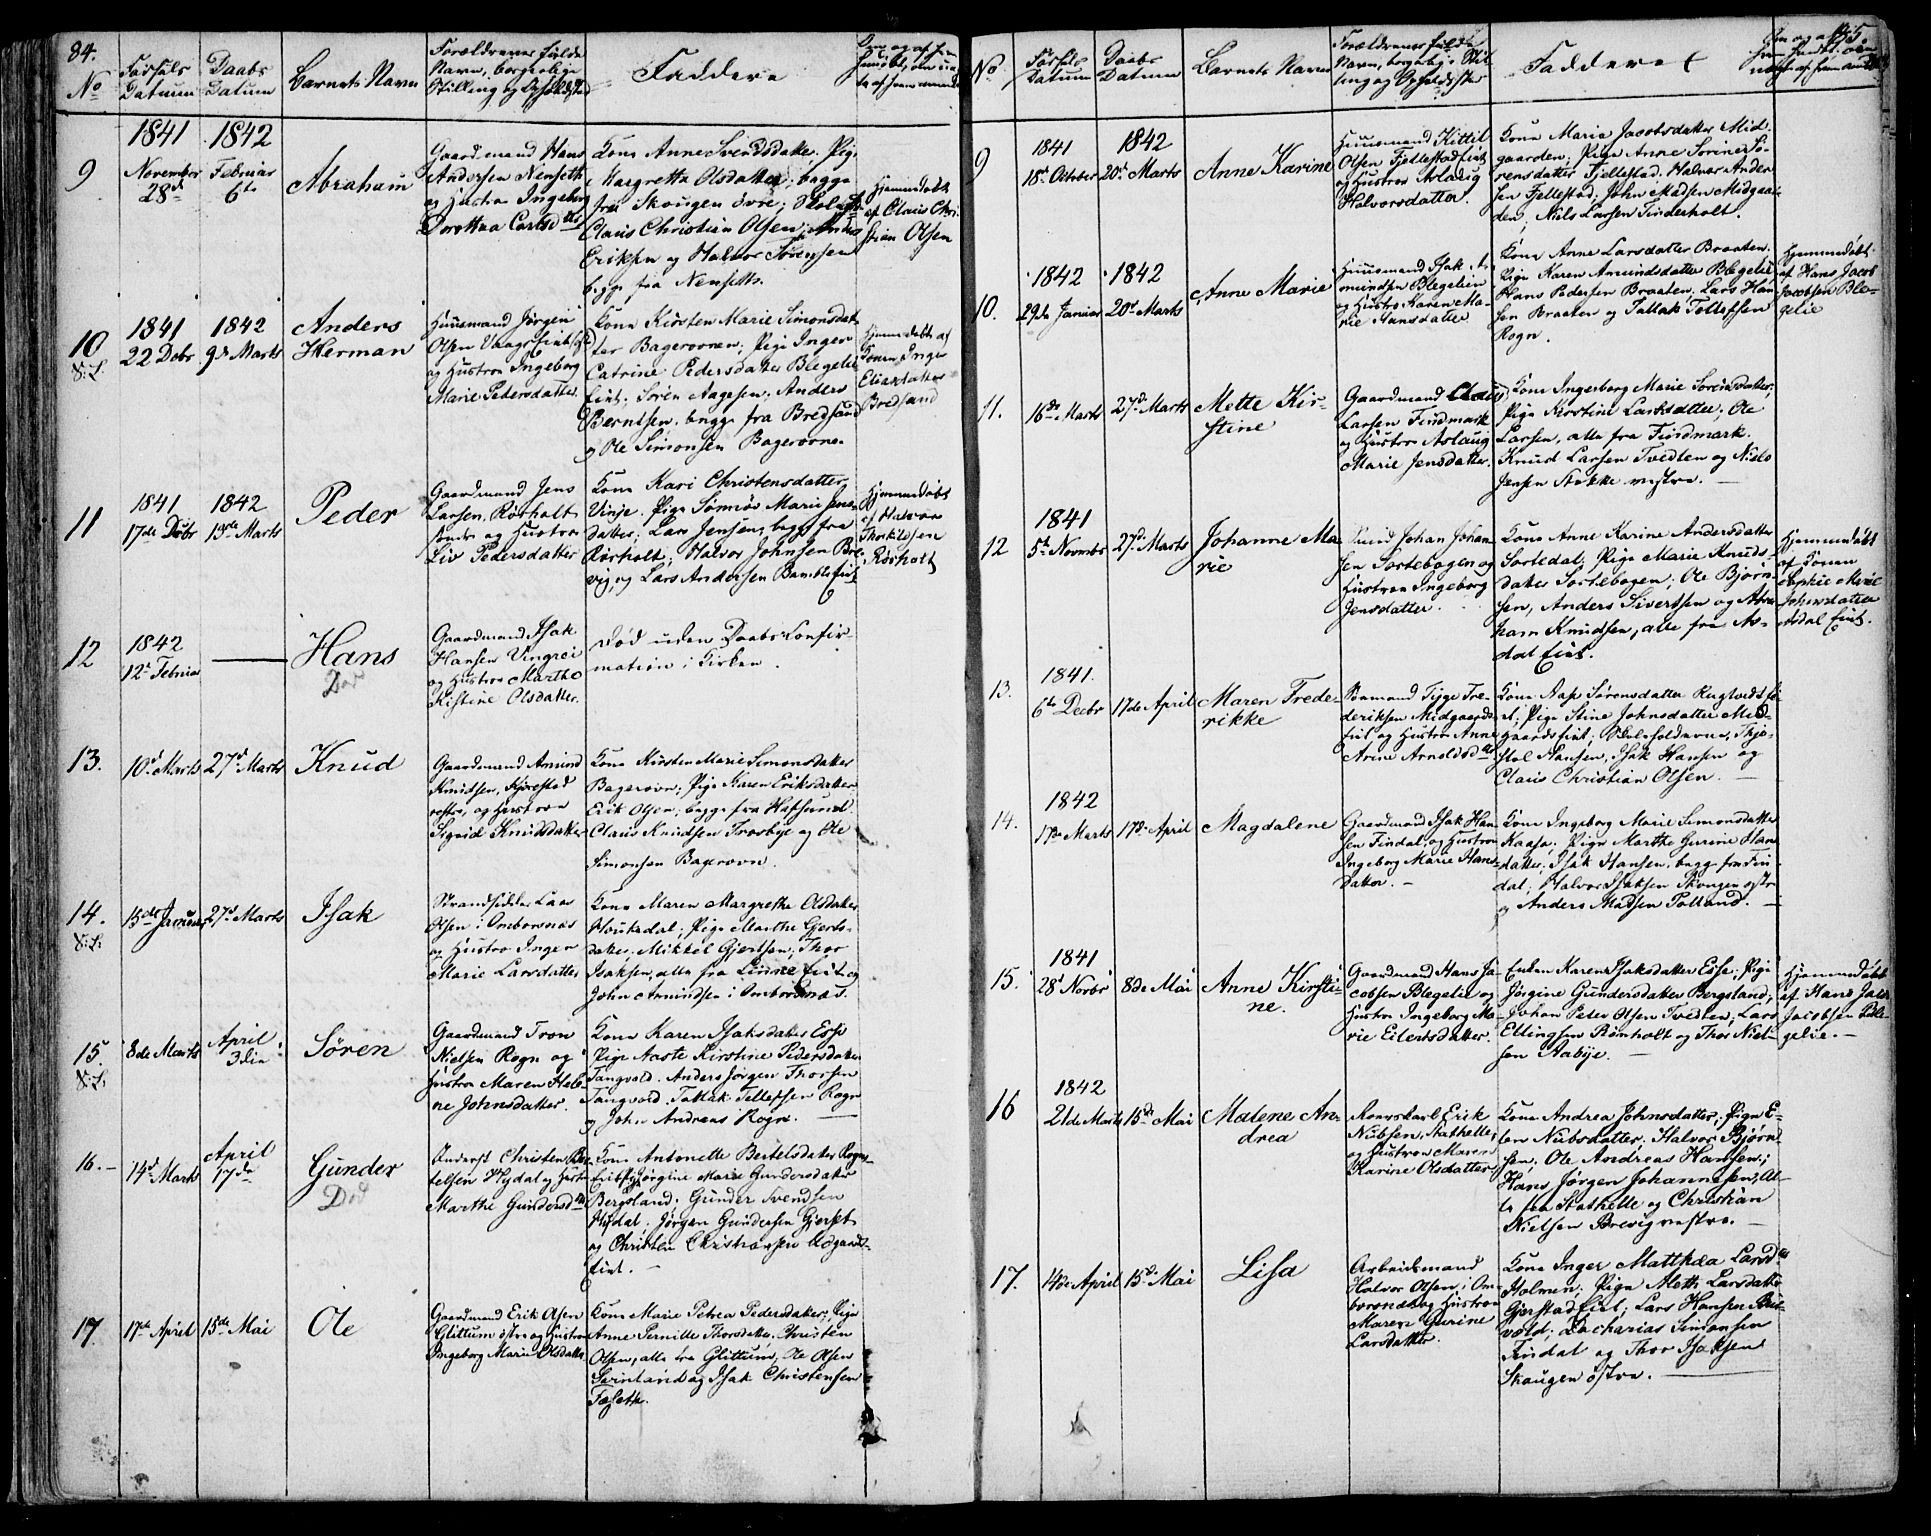 84.
No
Fødsels Datum
Daabs Datum
Barnets Navn
Forældrenes fulde
Navn, borgerlige
Stilling og Opholdsted
Faddere
9
1841
November
28de
1842
Februar
6te
Abraham
Gaardmand Hans
Andersen Nenseth
og Hustru Ingeborg
Dorothea Carlsdtr
Kone Anne Svendsdatter. Pige
Margrethe Olsdatter; begge
fra Skougen øvre;
Claus Christian Olsen,
Eriksen og Halvor Sørensen
begge fra Nenseth.
Hjemmedøbt
af Claus Chri
stian Olsen
10
1841
22 Decbr
1842
9de Marts
Anders
Herman
Huusmand Jørgen
Olsen
og Hustru Ingeborg
Marie Pedersdatter
Kone Kirsten Marie Simonsdat
ter Bagerovnen; Pige Inger
Catrine Pedersdatter Blegelie
eiet; Søren Aagesen, Anders
Berntsen, begge fra Bredsand
og Ole Simonsen Bagerovne.
Hjemmedøbt af
Konen Inger
Eliasdatter
Bredsand
11
1841
17de Decbr
1842
13de Marts
Peder
Gaardmand Jens
Larsen, Rørholt
søndre og Hustru
Liv Pedersdatter
Kone Kari Christensdatter
Vinje. Pige Marie Jens
datter; Lars Jensen, begge fra
Rørholt; Halvor Johnsen Bre
vig, og Lars Andersen Bambleeiet
Hjemmedøbt
af Halvor
Thorkildsen
Rørholt
12
1842
12te Februar
Hans
Død
Gaardmand Isak
Hansen Vingrei
og Hustru Marthe
Kistine Olsdatter.
Død uden Daabs Confir-
mation i Kirken.
13.
10de Marts
27de Marts
Knud
Gaardmand Amund
Knudsen, Kjørestad
vestre, og Hustruen
Sigrid Knudsdatter
Kone Kirsten Marie Simonsdatter
Bagerovn; Pige Karen Eriksdatter
Erik Olsen; begge fra Hafsund
Claus Knudsen Trosbye og Ole
Simonsen Bagerovn.
14.
15de Januar
27de Marts
Isak
Strandsidder Lars
Olsen i Omborsnæs
og Hustru Inger
Marie Larsdatter
Kone Maren Margrethe Olsdatter
Pige Marthe Gjerts-
datter; Mikkel Gjertsen; Thor
Isaksen, alle fra eiet og
John Amundsen i Omborsnæs.
15
8de Marts
April
3die
Søren
Gaardmand Tron
Nielsen Rogn og
Hustru Maren Hele
ne Johnsdatter.
Kone Karen Isaksdatter Esse
Pige Aaste Kirstine Pedersdatter
Tangvald. Anders Jørgen Thorsen
Tangvald. Tallak Tellefsen Rogn
og John Andreas Rogn.
16.
14de Marts
April
17de
Gunder
Død
Inderst Christen Ber
telsen Hydal og Hustru
Marthe Gundersdtr
Kone Antonette Bertelsdatter Rogns
eiet Pige Jørgine Marie Gundersdatter
Bergsland; Gunder Svendsen
Hydal; Jørgen Gundersen Gjerset
og Christen Christensen Aasgaards-
eiet.
17.
17de April
15de Mai
Ole
Gaardmand Erik Olsen
Glittum østre og Hustru
Ingeborg Marie Olsdatter
Kone Marie Petrea Pedersdatter, Pige
Anne Pernille Thorsdatter. Christen
Olsen, alle fra Glittum, Ole Olsen
og Isak Christensen
Fæseth.
85.
No
Fødsels Datum
Daabs Datum
Barnets Navn
Forældrenes fulde
Navn, borgerlige Stil
ling og Opholdssted
Faddere
9
1841
18de October
1842
20de Marts
Anne Karine
Huusmand Kittil
Olsen Fjellestadeiet
og Hustru Aslaug
Halvorsdatter.
Kone Maria Jacobsdatter Mid
gaarden; Pige Anne Sørine Sø
rensdatter Fjellestad. Halvor Ander
sen Fjellestad, John Madsen Midgaar
den, Niels Larsen Finderholt.
10.
1842
29de Januar
1842
20de Marts
Anne Marie
Huusmand Isak A
mundsen Blegelien
og Hustru Karen Ma-
rie Hansdatter
Kone Anne Larsdatter Braaten.
Pige Karen Amundsdatter Blegelie
Hans Pedersen Braaten, Lars Han
sen Braaten og Tallak Tellefsen
Rogn.
Hjemmedøbt
af Hans Jacob
Jacobsen Ble-
gelie
11.
16de Marts
27de Marts
Mette Kir-
stine
Gaardmand Claus
Larsen Findmark
og Hustru Aslaug
Marie Jensdatter.
Kone Ingerborg Marie Sørensdatter,
Pige Kirstine Larsdatter, Ole
Larsen, alle fra Findmark.
Knud Larsen Tvedten og Niels
Jensen Stokke vestre.
12
1841
5te Novembr
27de Marts
Johanne Ma
rie
Johan Johan
sen Sortebogen og
Hustruen Ingeborg
Jensdatter.
Kone Anne Karine Andersdatter
Sortedal; Pige Marie Knuds-
datter Sortebogen; Ole Bjørn-
sen, Anders Sivertsen og Abra
ham Knudsen, alle fra As-
dal eiet.
Hjemmedøbt
af Konen
Sophie Marie
Johnsdatter
Asdal Eiet.
13.
1841.
6te Decbr
17de April
Maren Frede-
rikke
Tyge Fre-
deriksen Midgaards
eiet og Hustru Anne
Arine Arnoldsdtr
Kone Aase Sørensdatter Rugtvedts ei
et; Pige Stine Johnsdatter Mid
gaardseiet; Thjo-
stol Hansen, Isak Hansen og
Claus Christian Olsen.
14.
1842
17de Marts
17de April
Magdalene
Gaardmand Isak Han-
sen Findal, og Hustru
Ingeborg Marie Hans-
datter.
Kone Ingeborg Marie Simonsdatter
Kaasa; Pige Marthe Gurine Hans
datter, Isak Hansen, begge fra Fin
dal; Halvor Isaksen Skougen østre
og Anders Madsen Tolland.
15.
1841
28de Novbr
8de Mai
Anne Kirsti-
ne.
Gaardmand Hans Ja
cobsen Blegelie og
Hustru Ingeborg Ma-
rie Eilertsdatter.
Enken Karen Isaksdatter Esse; Pige
Jørgine Gundersdatter Bergsland;
Johan Peter Olsen Tvedten, Lars
Ellingsen Rømholt og Thor Niel-
sen Aabye.
Hjemmedøbt
af Hans Jacob
Jacobsen Ble-
gelie.
16
1842
21de Marts
15de Mai
Malene An-
drea
Erik
Nubsen, Stathelle,
og Hustru Maren
Karine Olsdatter
Kone Andrea Johnsdatter; Pige E-
len Nubsdatter. Halvor Bjørn
sen, Ole Andreas Hansen;
Hans Jørgen Johannesen, al-
le fra Stathelle og Christian
Nielsen Brevig vestre.
17.
14de April
15de Mai
Lisa
Arbeidsmand
Halvor Olsen, i Om-
borsnæs og Hustru
Maren Gurine
Larsdatter.
Kone Inger Matthea Larsdtr
Holmen; Pige Aleth Larsdatter
Gjerstadeiet; Lars Hansen
Zacharias Simonsen
Findal og Thor Isaksen
Skaugen østre.